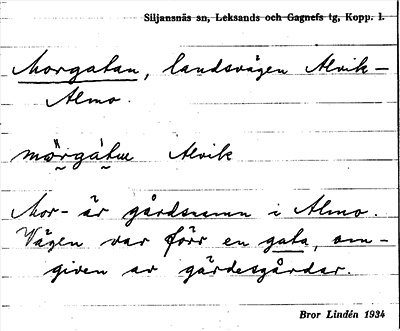 Siljansnäs sn, Leksands och Gagnefs tg, Kopp. l.
Morgatan, landsvägen Alvik-
Almo.
Alvik
Mor- är gårdsnamn i Almo.
Vägen var förr en gata, om-
given av gärdesgårdar.
Bror Lindén 1934